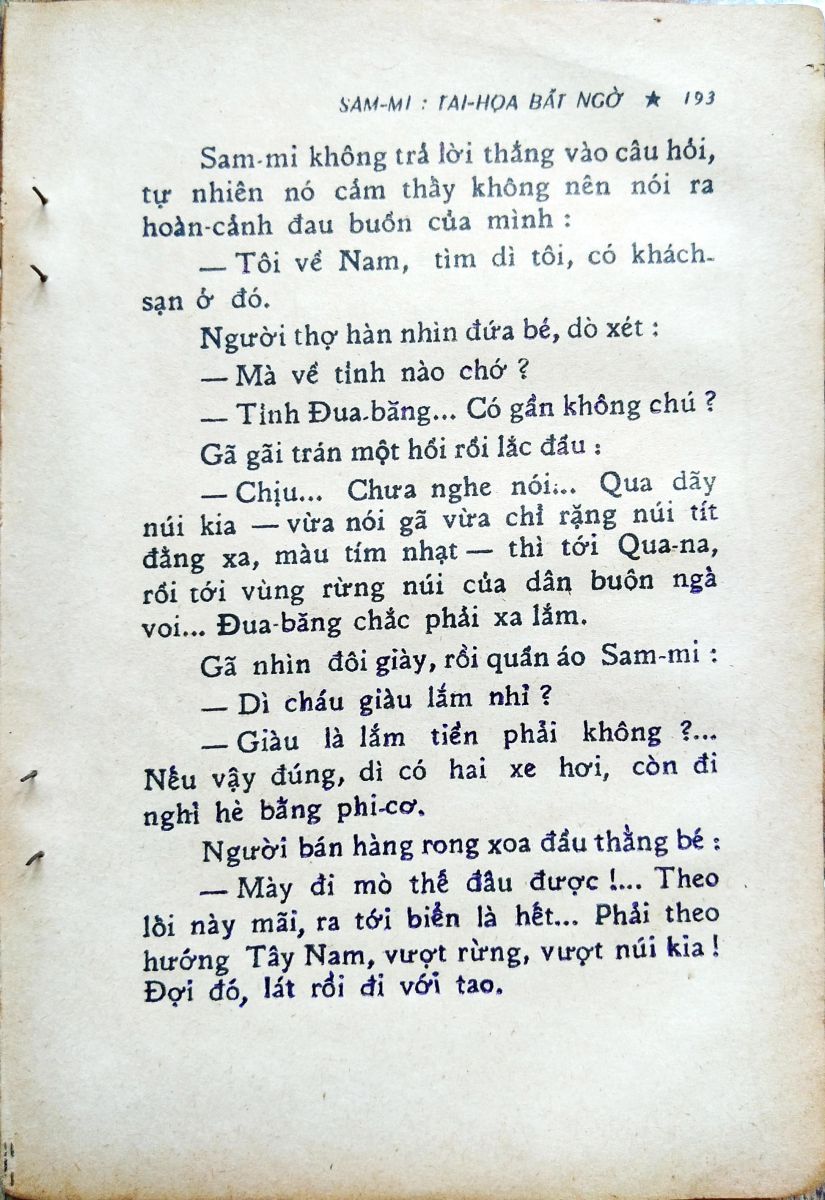 SAM-MI : TAI-HỌA BẤT NGỜ ★ 193
Sam-mi không trả lời thẳng vào câu hỏi,
tự nhiên nó cảm thấy không nên nói ra
hoàn-cảnh đau buồn của mình :
— Tôi về Nam, tìm dì tôi, có khách-
sạn ở đó.
Người thợ hàn nhìn đứa bé, dò xét :
— Mà về tỉnh nào chớ ?
— Tỉnh Đua-băng... Có gần không chú ?
Gã gãi trán một hồi rồi lắc đầu :
— Chịu... Chưa nghe nói... Qua dãy
núi kia — vừa nói gã vừa chỉ rặng núi tít
đằng xa, màu tím nhạt — thì tới Qua-na,
rồi tới vùng rừng núi của dân buôn ngà
voi... Đua-băng chắc phải xa lắm.
Gã nhìn đôi giày, rồi quần áo Sam-mi :
— Dì cháu giàu lắm nhỉ ?
— Giàu là lắm tiền phải không ?...
Nếu vậy đúng, dì có hai xe hơi, còn đi
nghỉ hè bằng phi-cơ.
Người bán hàng rong xoa đầu thằng bé :
— Mày đi mò thế đâu được !... Theo
lối này mãi, ra tới biển là hết... Phải theo
hướng Tây Nam, vượt rừng, vượt núi kia !
Đợi đó, lát rồi đi với tao.